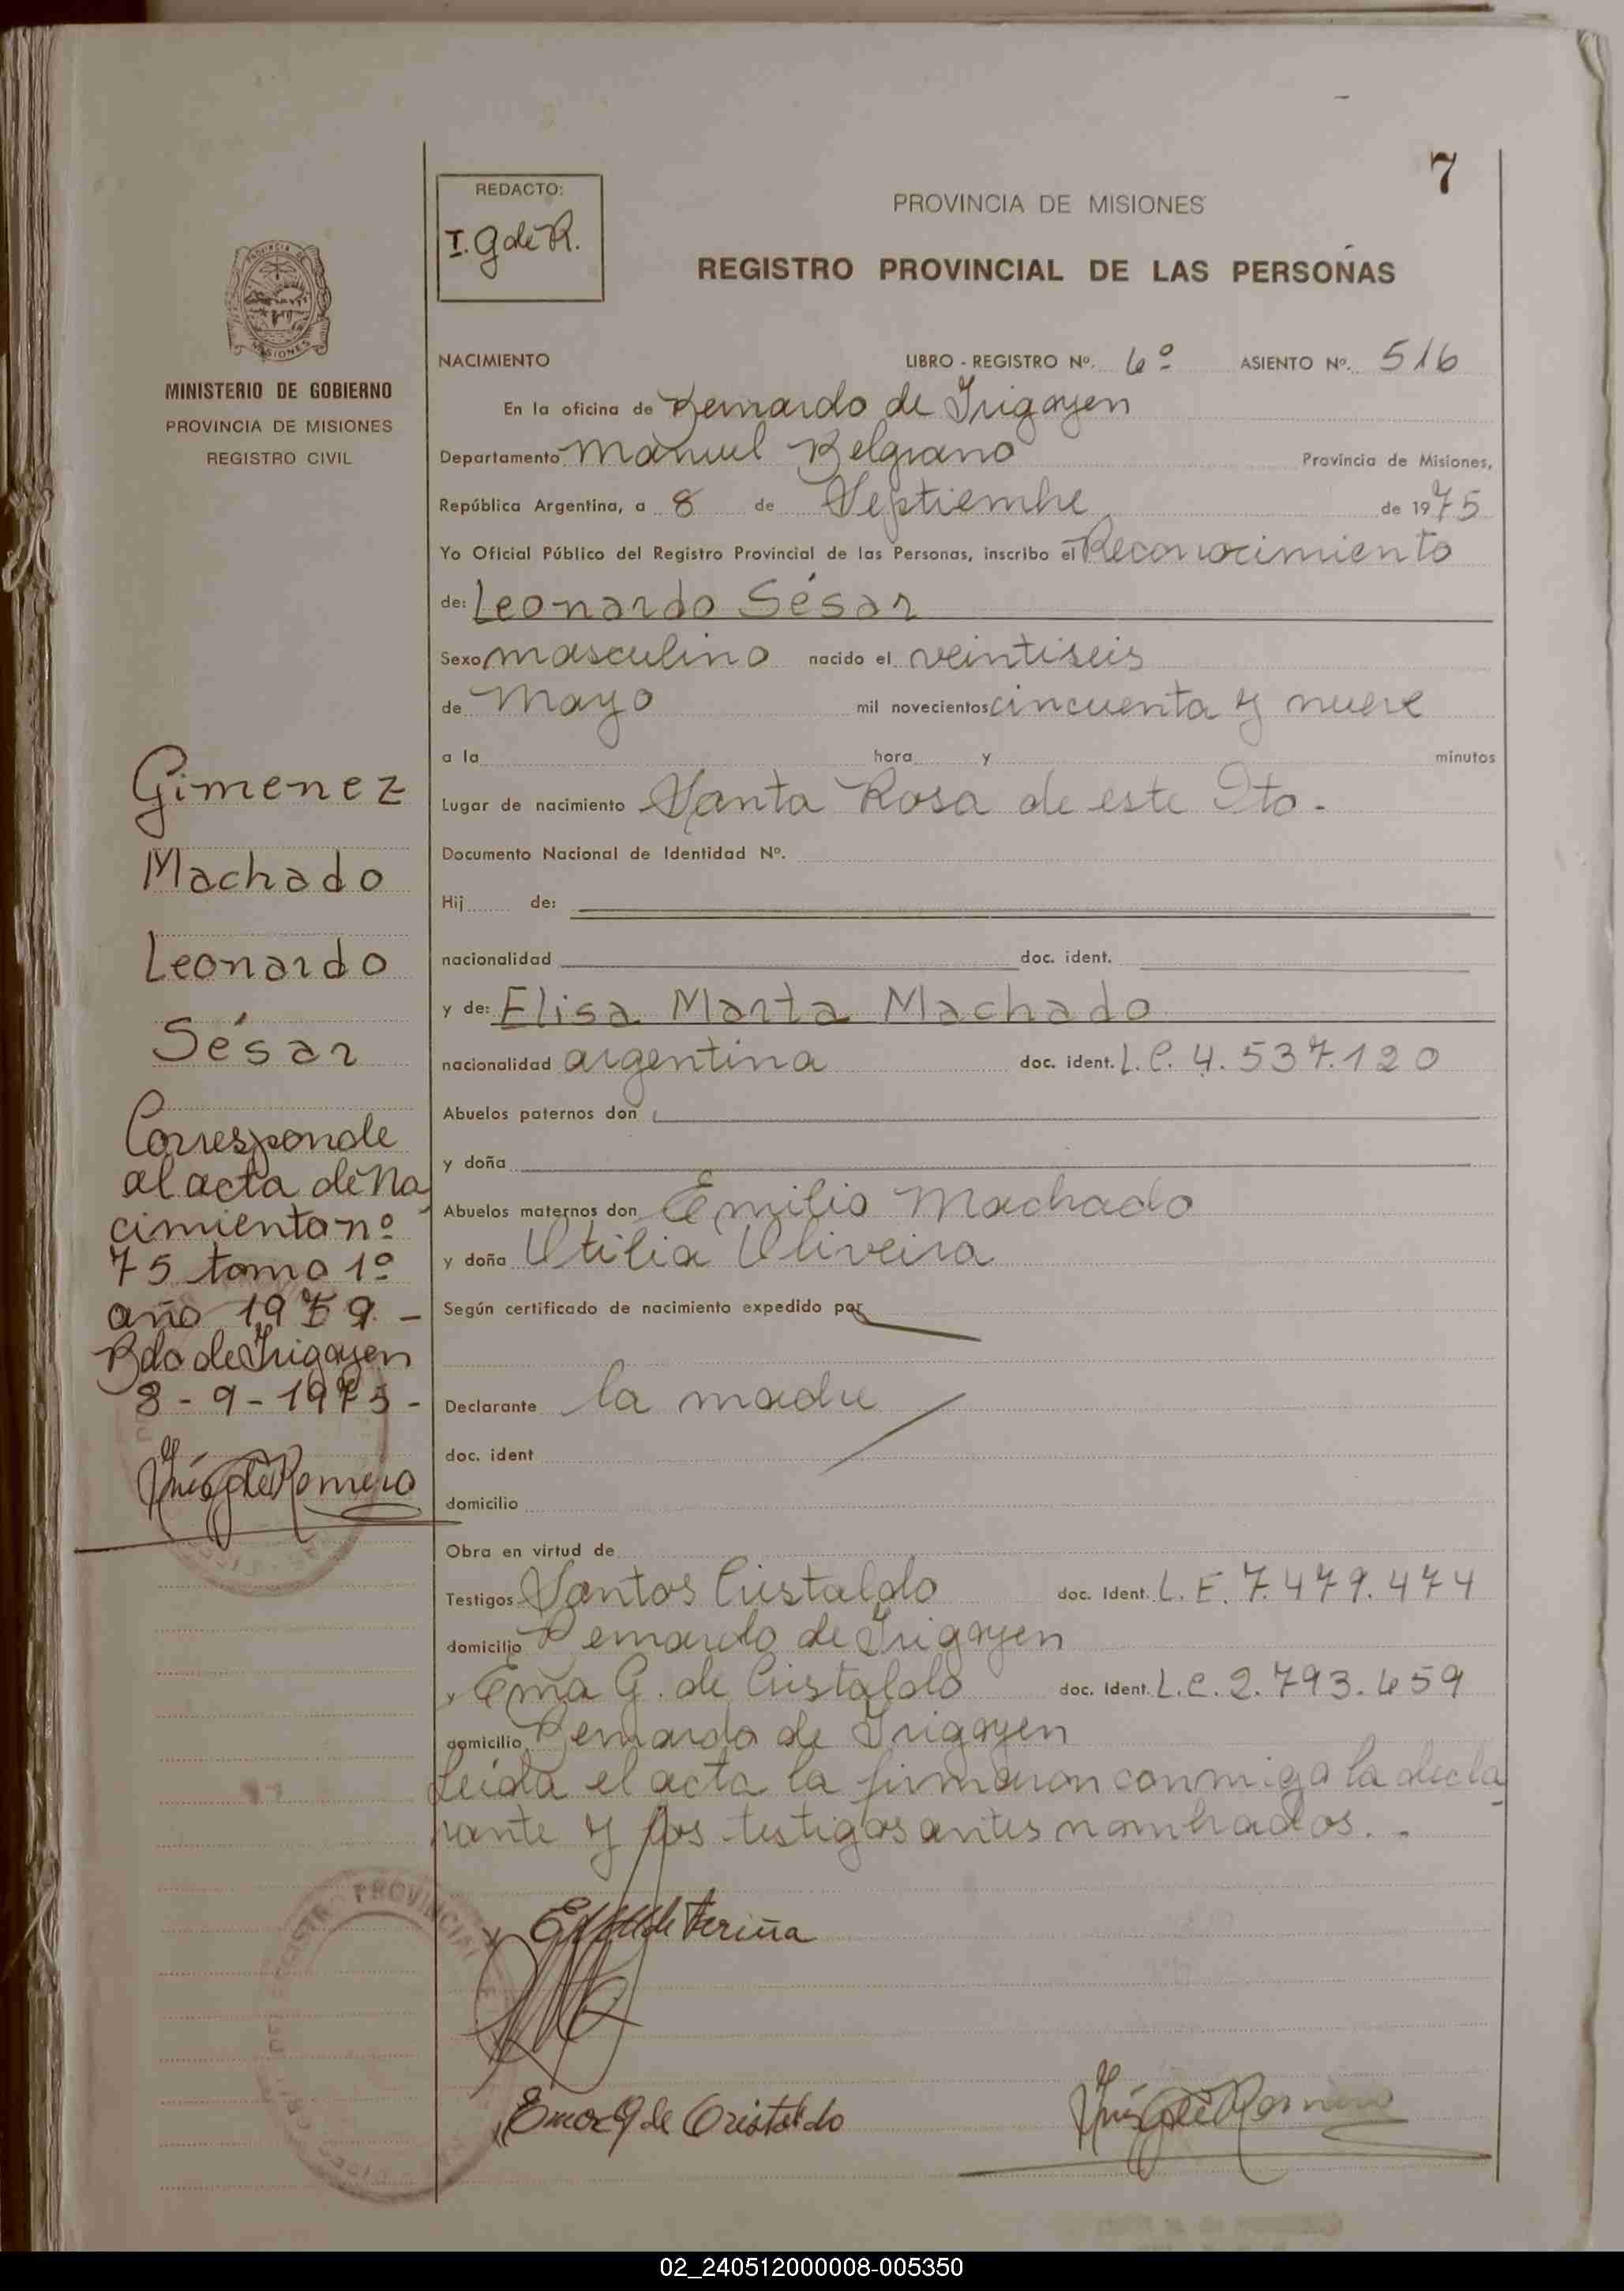 7
REDACTO:
I. G de R.
PROVINCIA DE MISIONES
REGISTRO PROVINCIAL DE LAS PERSONAS
MINISTERIO DE GOBIERNO
PROVINCIA DE MISIONES
REGISTRO CIVIL
NACIMIENTO LIBRO - REGISTRO Nº. 6º ASIENTO Nº. 516
En la oficina de Bernardo de Irigoyen
Departamento Manuel Belgrano Provincia de Misiones,
República Argentina, a 8 de Septiembre de 1975
Yo Oficial Público del Registro Provincial de las Personas, inscribo el Reconocimiento
de: Leonardo Sésar
Sexo masculino nacido el veintiseis
de Mayo mil novecientos cincuenta y nueve
a la hora y minutos
Lugar de nacimiento Santa Rosa de este Dto.
Documento Nacional de Identidad Nº.
Hij de:
nacionalidad doc. ident.
y de: Elisa Marta Machado
nacionalidad argentina doc. ident. L.C. 4.537.120
Abuelos paternos don
y doña
Abuelos maternos don Emilio Machado
y doña Otilia Oliveira
Según certificado de nacimiento expedido por
Declarante la madre
doc. ident
domicilio
Obra en virtud de
Testigos Santos Cristaldo doc. Ident. L.E. 7.479.474
domicilio Bernardo de Irigoyen
y Ema G. de Cristaldo doc. Ident. L.C. 2.793.659
domicilio Bernardo de Irigoyen
Leída el acta la firmaron conmigo la decla
rante y los testigos antes nombrados. -
Gimenez
Machado
Leonardo
Sésar
Corresponde
al acta de Na
cimiento nº
75 tomo 1º
año 1959. -
Bdo de Irigoyen
8-9-1975-
Inés G de Romero
REGISTRO PROVINCIAL
de Fariña
Ema G de Cristaldo
Inés G de Romero
02_240512000008-005350